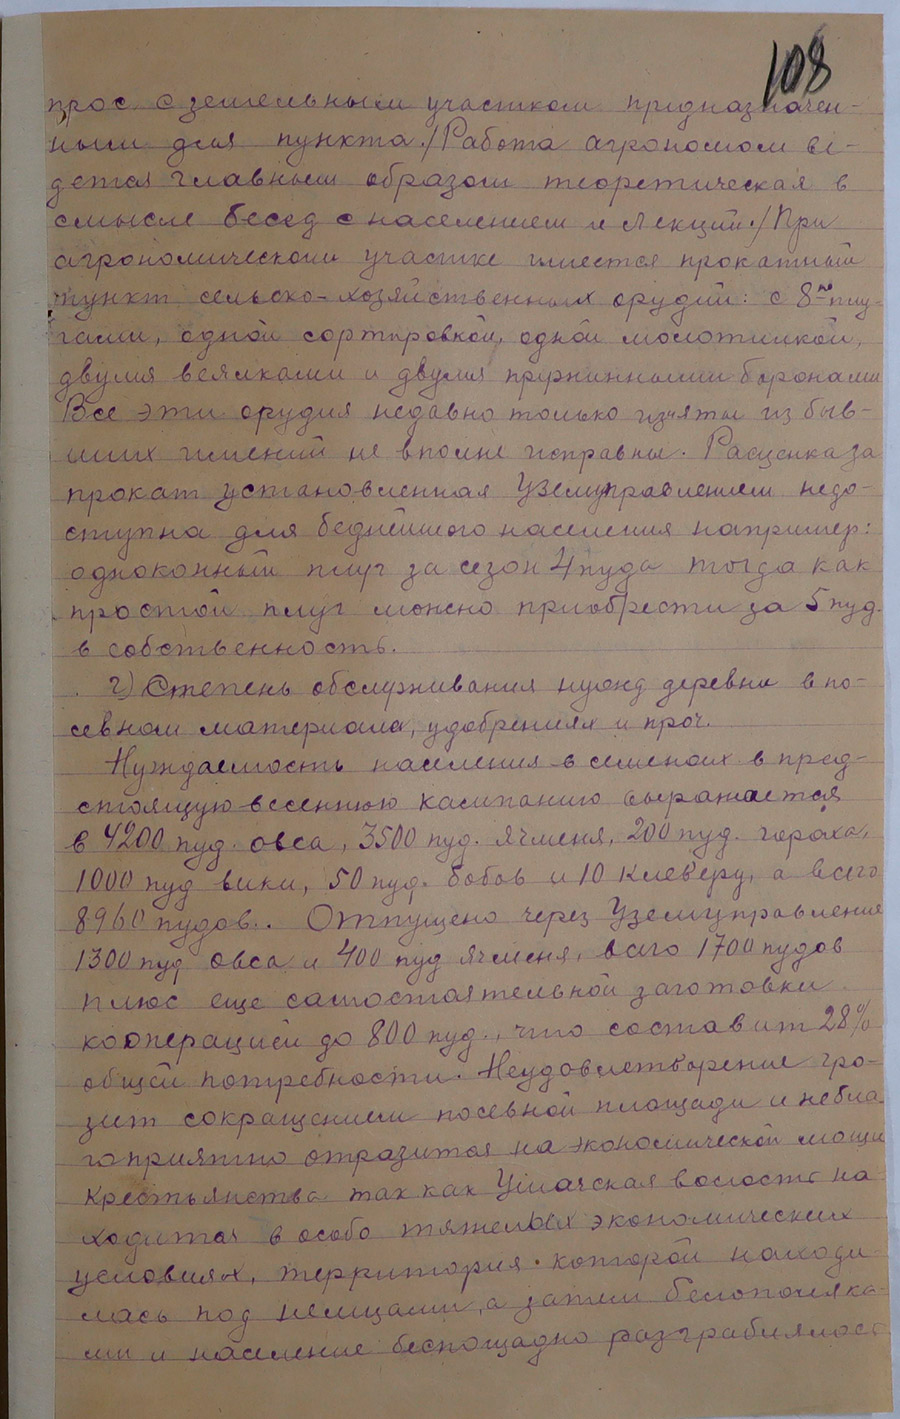 108
прос с земельным участком предназначен-
ным для пункта./Работа агрономом ве-
дется главным образом теоретическая в
смысле бесед с населением и лекций./При
агрономическом участке имеется прокатный
пункт сельско-хозяйственных орудий: с 8-ю плу-
гами, одной сортировкой, одной молотилкой,
двумя веялками и двумя пружинными боронами
Все эти орудия недавно только изъяты из быв-
ших имений не вполне исправны. Расценка за
прокат установленная Уземуправлением недо-
ступна для беднейшего населения например:
одноконный плуг за сезон 4 пуда тогда как
простой плуг можно приобрести за 5 пуд.
в собственность.
г) Степень обслуживания нужд деревни в по-
севном материала, удобрениях и проч.
Нуждаемость населения в семенах в пред-
стоящую весеннюю кампанию выражается
в 4200 пуд. овса, 3500 пуд. ячменя, 200 пуд. гороха,
1000 пуд вики, 50 пуд. бобов и 10 клеверу, а всего
8960 пудов.. Отпущено через Уземуправление
1300 пуд овса и 400 пуд ячменя, всего 1700 пудов
плюс еще самостоятельной заготовки
кооперацией до 800 пуд., что составит 28%
общей потребности. Неудовлетворение гро-
зит сокращением посевной площади и небла-
гоприятно отразится на экономической мощи
крестьянства так как волость на
ходится в особо тяжелых экономических
условиях, территория которой находи-
лась под немцами, а затем белополяка-
ми и население беспощадно разграблялось